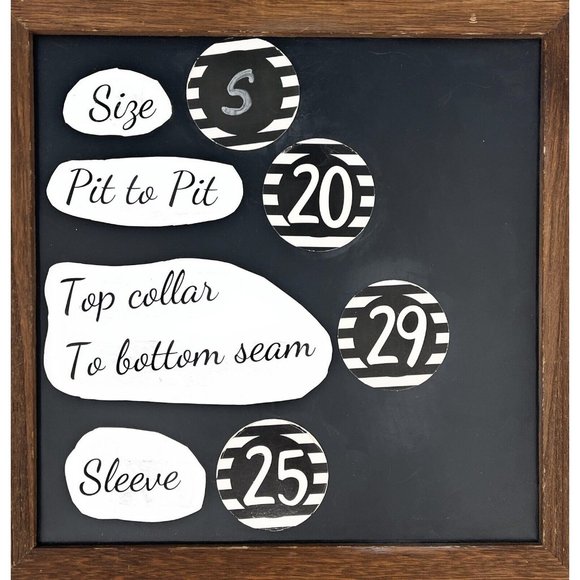 Size S
Pit to Pit 20
Top collar
To bottom seam 29
Sleeve 25